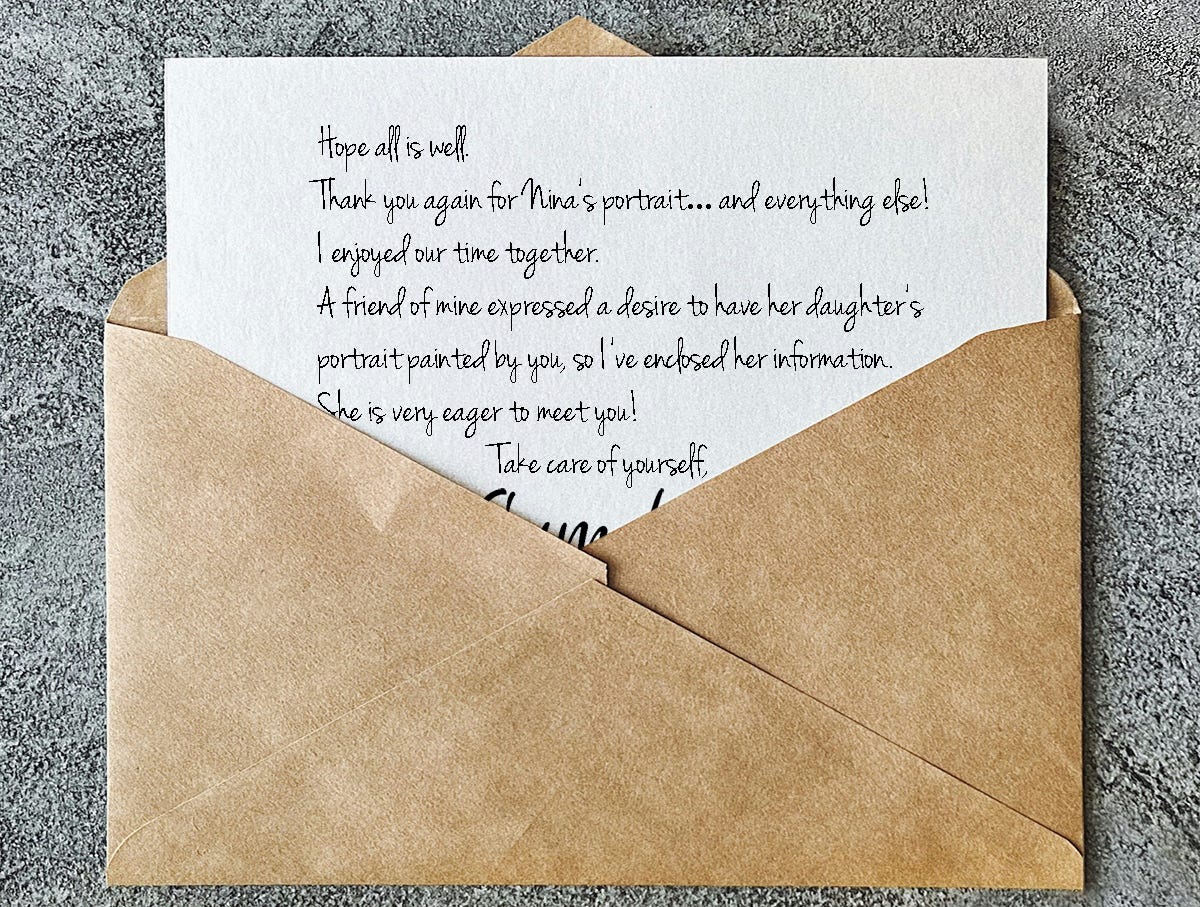 Hope all is well.
Thank you again for Nina's portrait... and everything else!
I enjoyed our time together.
A friend of mine expressed a desire to have her daughter's
portrait painted by you, so I've enclosed her information.
She is very eager to meet you!
Take care of yourself,